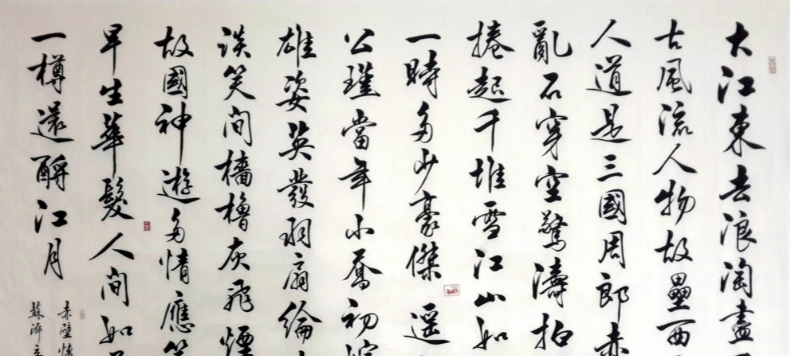 大江東去浪淘盡
古風流人物故壘西
人道是三國周郎赤
亂石穿空驚濤拍
捲起千堆雪江山如
一時多少豪傑遙
公瑾當年小喬初
雄姿英發羽扇綸
談笑間檣櫓灰飛煙
故國神遊多情應笑
早生華髮人間如
一樽還酹江月
赤壁懷